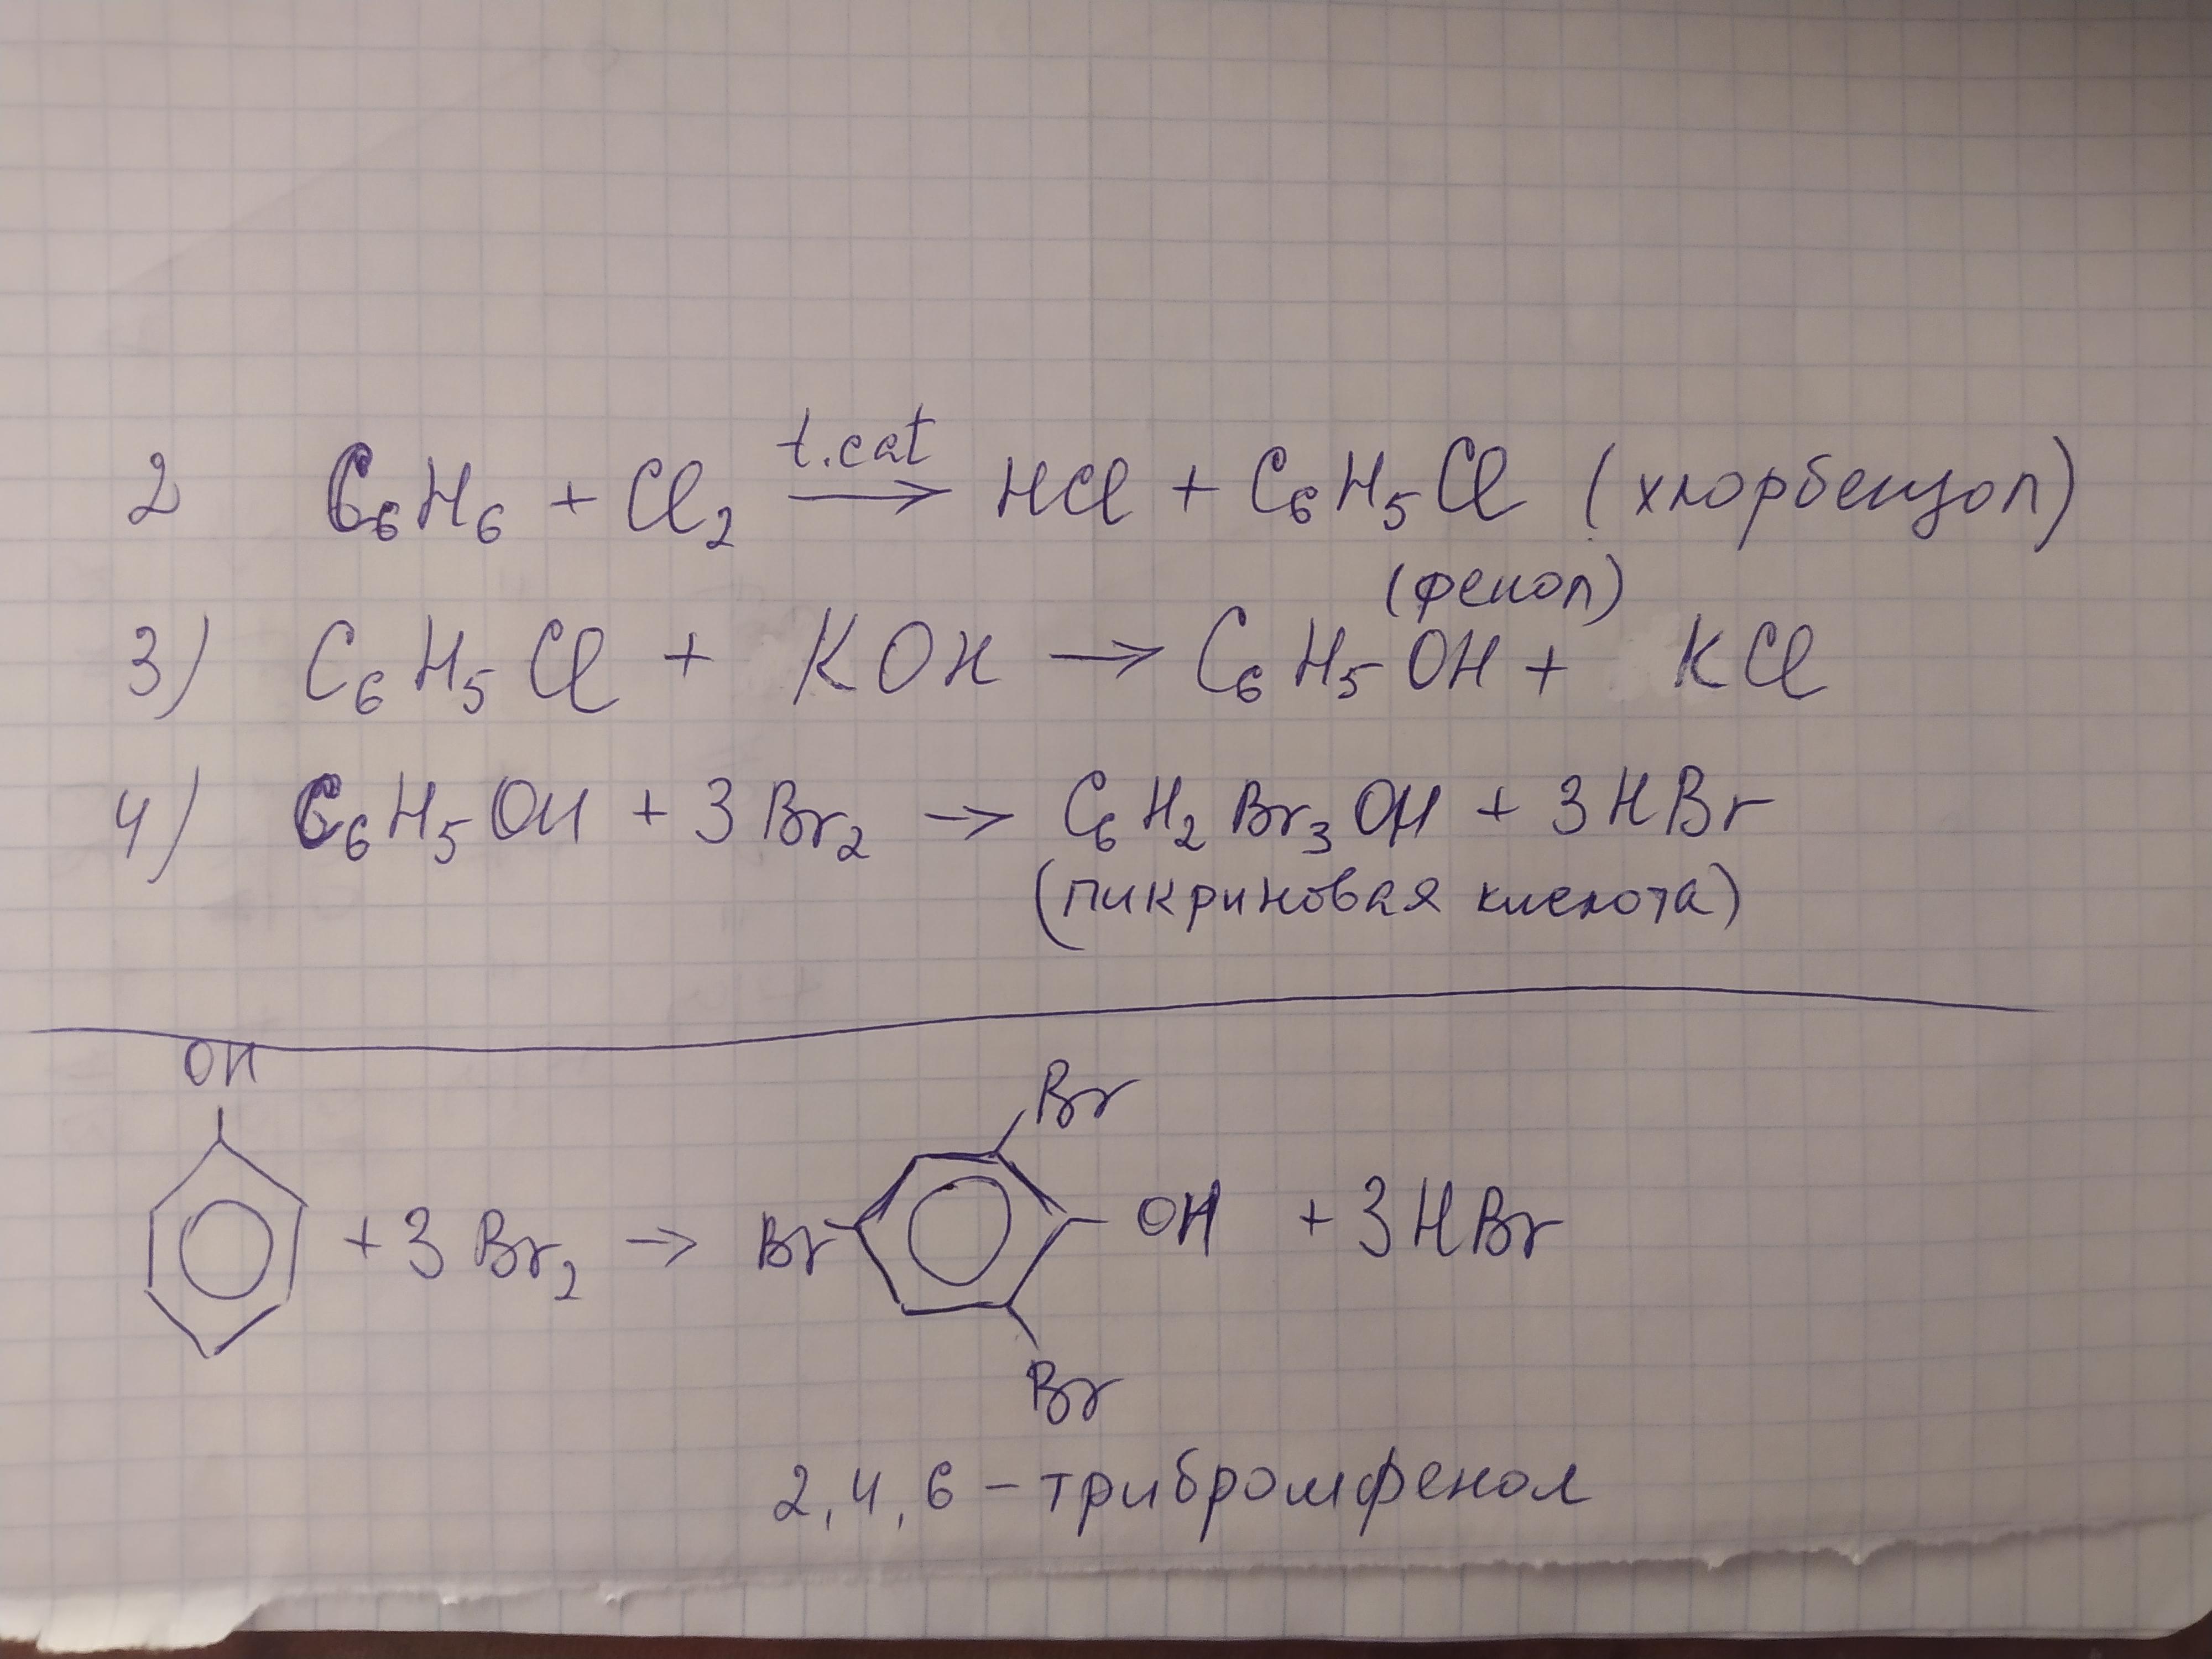 2 C₆H₆ + Cl₂ t.cat → HCl + C₆H₅Cl (хлорбензол)
(фенол)
3) C₆H₅Cl + KOH → C₆H₅OH + KCl
4) C₆H₅OH + 3Br₂ → C₆H₂Br₃OH + 3HBr
(пикриновая кислота)
OH
Br
+ 3Br₂ → Br OH + 3HBr
Br
2,4,6 – трибромфенол